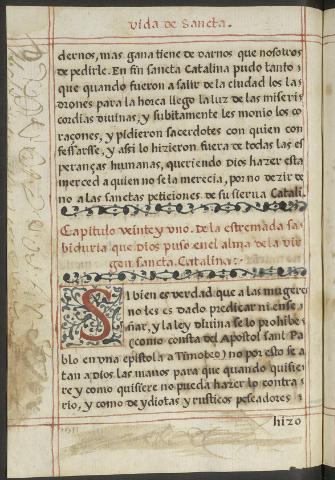 Vida de Sancta.
dernos, mas gana tiene de darnos que nosotros
de pedirle. En fin sancta Catalina pudo tanto
que quando fueron a salir de la ciudad los la=
drones para la horca llego la luz de las miseri=
cordias diuinas, y subitamente les mouio los co=
raçones, y pidieron sacerdotes con quien con
fessarsse, y assi lo hizieron fuera de todas las es
peranças humanas, queriendo Dios hazer esta
merced a quien no se la merecia, por no dezir de
no a las sanctas peticiones de su sierua Catali
Capitulo veinte y vno. De la estremada sa=
biduria que dios puso en el alma de la vir
gen sancta. Catalina:~
SI bien es verdad que a las mugeres
no les es dado predicar ni ense=
ñar, y la ley diuina se lo prohibe
(como consta del Apostol sant Pa
blo en vna epistola a Timoteo) no por esto se a
tan a dios las manos para que quando quisie=
re y como quisiere no pueda hazer lo contra
rio, y como de ydiotas y rusticos pescadores
hizo